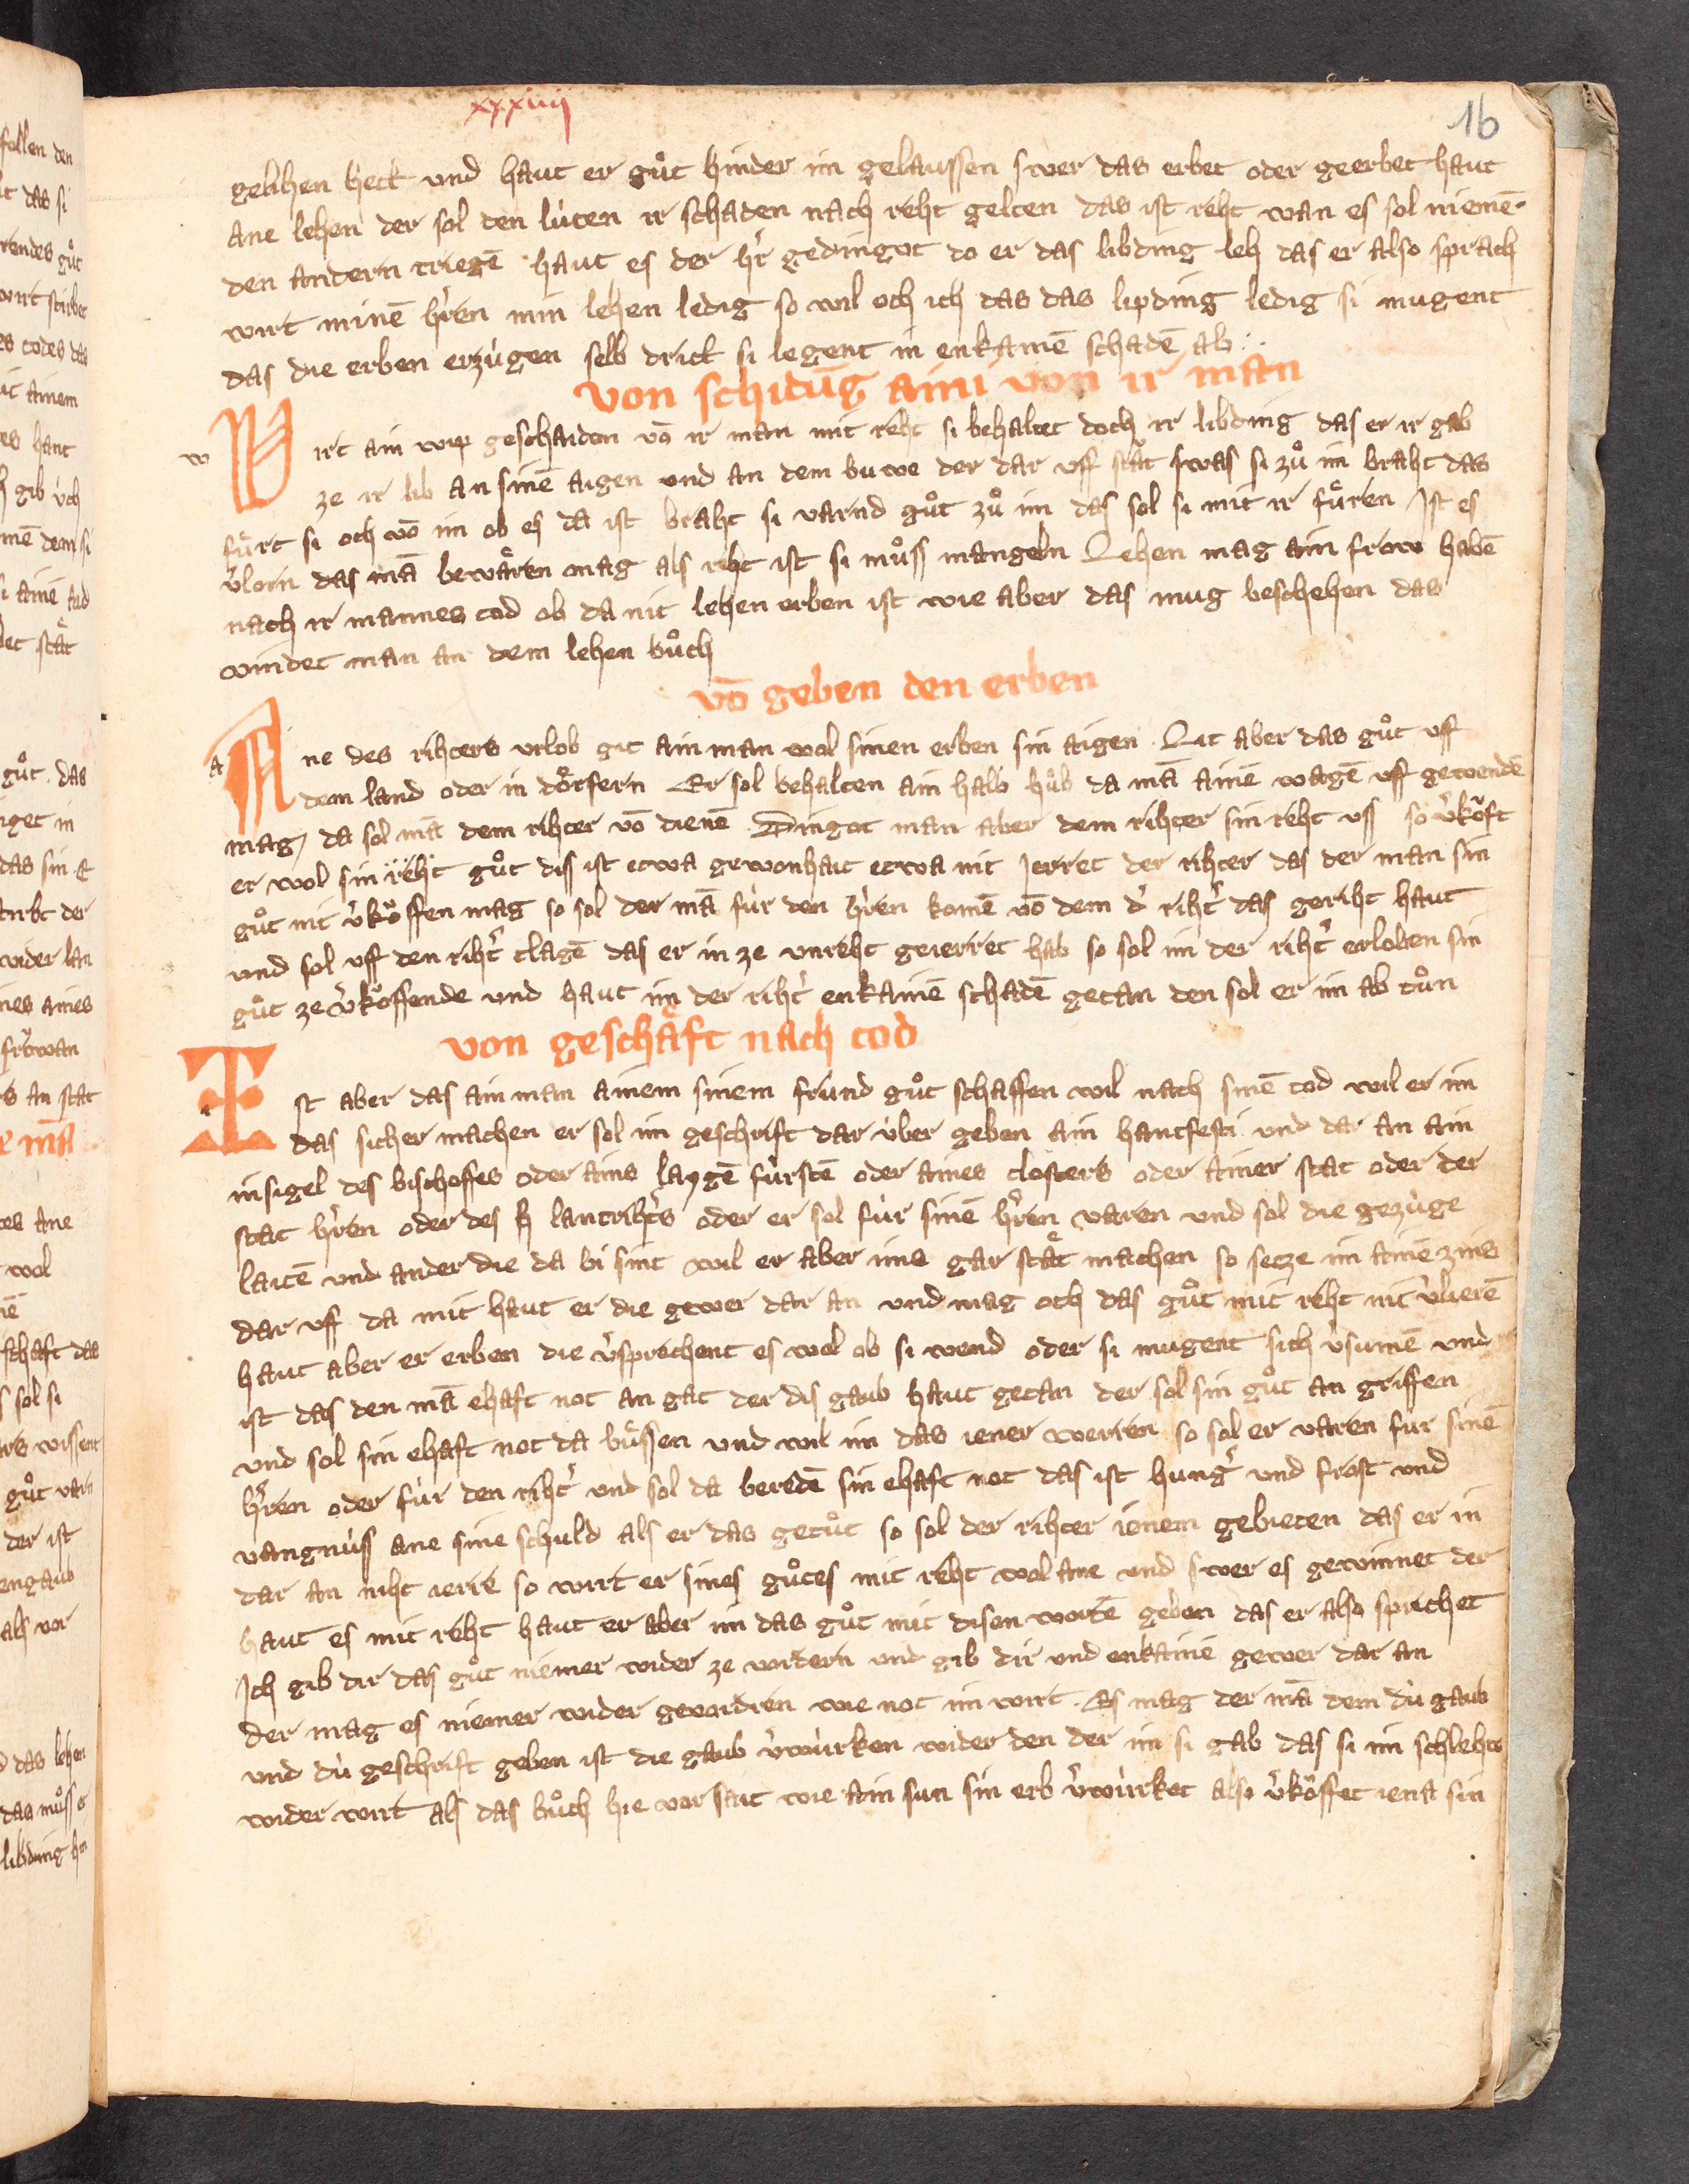 xxxiiij
16
gelihen hett vnd haut er gůt hinder im gelaussen swer das erbet oder geerbet haut
ane lehen der sol den lùten ir schaden nach reht gelten das ist reht wan es sol niemē
den andern triegē haut es der hr̄ gedingot do er das libding leh das er also sprach
wirt minē hr̄en min lehen ledig so wil och ich das das lipding ledig si mugent
das die erben erzùgen selb dritt si legent in enkainē schadē ab
von schidūg aini von ir man
w
Wirt ain wip geschaiden vō ir man mit reht si behaltet doch ir libding das er ir gab
ze ir lib an sinē aigen vnd an dem buwe der dar vff stat swas si zů im braht das
fůrt si och vō im ob es da ist braht si varnd gůt zů im das sol si mit ir fůren Ist es
v̓lorn das mā bewaͤren mag als reht ist si můss mangeln Lehen mag ain frow habē
nach ir mannes tod ob da nit lehen erben ist wie aber das mug beschehen das
vindet man an dem lehen bůch
vō geben den erben
a
Ane des rihters vrlob git ain man wol sinen erben sin aigen Lit aber das gůt vff
dem land oder in doͤrfern Er sol behalten ain halb hůb da mā ainē wagē vff gewendē
mag da sol mā dem rihter vō dienē Dingot man aber dem rihter sin reht vss so v̓koͧft
er wol sin reht gůt diss ist etwa gewonhait etwa nit Ierret der rihter das der man sin
gůt nit v̓koͧffen mag so sol der mā fùr den hr̄en komē vō dem d̓ riht̓ das geriht haut
vnd sol vff den riht̓ clagē das er in ze vnreht geierret hab so sol im der riht̓ erloben sin
gůt ze v̓koͧffende vnd haut im der riht̓ enkainē schadē getan den sol er im ab tůn
von geschaͤft nach tod
Ist aber das ain man ainem sinem frund gůt schaffen wil nach sinē tod wil er im
das sicher machen er sol im geschrift dar ùber geben ain hantfesti vnd dar an ain
insigel des bischoffes oder ains laygē fùrstē oder aines closters oder ainer stat oder der
stat hr̄en oder des lantriht̓s oder er sol fùr sinē hr̄en varen vnd sol die gezùge
laitē vnd ander die da bi sint wil er aber ims gar staͤt machen so setze im ainē zins
dar vff da mit haut er die gewer dar an vnd mag och das gůt mit reht nit v̓lierē
haut aber er erben die v̓sprechent es wol ob si wend oder si mugent sich v̓sumē vnd
ist das den mā ehaft not an gat der dis gaub haut getan der sol sin gůt an griffen
vnd sol sin ehaft not da bůssen vnd wil im das iener werren so sol er varen fur sinē
hr̄en oder fùr den riht̓ vnd sol da beredē sin ehaft not das ist hung̓ vnd frost vnd
vangnùss ane sine schuld als er das getůt so sol der rihter ienem gebieten das er in
dar an niht ierre so wirt er sines gůtes mit reht wol ane vnd swer es gewinnet der
haut es mit reht haut er aber im das gůt mit disen wortē geben das er also sprichet
Ich gib dir das gůt niemer wider ze vordern vnd gib dir vnd enkaine gewer dar an
der mag es niemer wider gevordren wie not im wirt Es mag der mā dem dù gaub
vnd dù geschrift geben ist die gaub v̓wùrken wider den der im si gab das si im schlehts
wider wirt als das bůch hie vor sait wie ain sun sin erb v̓wùrket also v̓koͧffet iena sin